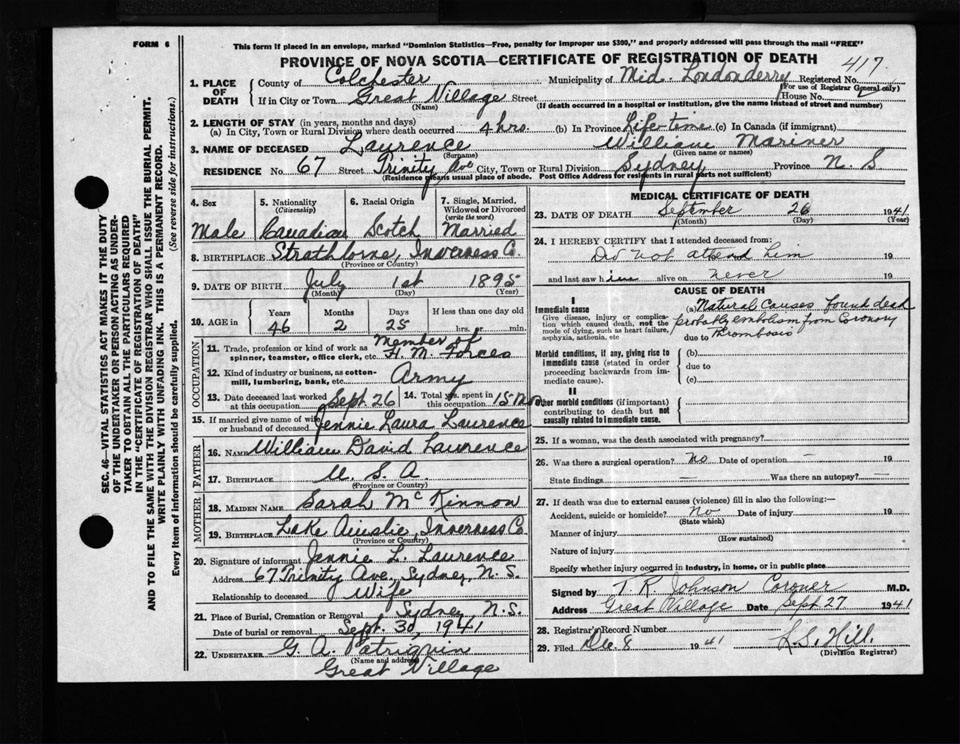 FORM 6
This form if placed in an envelope, marked "Dominion Statistics—Free, penalty for improper use $300," and properly addressed will pass through the mail "FREE"
PROVINCE OF NOVA SCOTIA—CERTIFICATE OF REGISTRATION OF DEATH
417
1. PLACE OF DEATH
County of Colchester Municipality of Mid. Londonderry Registered No.
(For use of Registrar General only)
If in City or Town Great Village Street House No.
(Name) (If death occurred in a hospital or institution, give the name instead of street and number)
2. LENGTH OF STAY (in years, months and days)
(a) In City, Town or Rural Division where death occurred 4 hrs. (b) In Province Life-time (c) In Canada (if immigrant)
3. NAME OF DECEASED Laurence William Mariner
(Surname) (Given name or names)
RESIDENCE No. 67 Street Trinity Ave City, Town or Rural Division Sydney Province N. S
(Residence means usual place of abode. Post Office Address for residents in rural parts not sufficient)
4. Sex Male
5. Nationality (Citizenship) Canadian
6. Racial Origin Scotch
7. Single, Married, Widowed or Divorced (write the word) Married
8. BIRTHPLACE Strathlorne, Inverness Co.
(Province or Country)
9. DATE OF BIRTH July 1st 1895
(Month) (Day) (Year)
10. AGE in Years Months Days If less than one day
46 2 25 hrs. or min.
OCCUPATION
11. Trade, profession or kind of work as spinner, teamster, office clerk, etc. Member of H. M. Forces
12. Kind of industry or business, as cotton-mill, lumbering, bank, etc. Army
13. Date deceased last worked at this occupation Sept. 26
14. Total yrs. spent in this occupation 15 Mos
15. If married give name of wife or husband of deceased Jennie Laura Laurence
FATHER
16. NAME William David Laurence
17. BIRTHPLACE U. S. A.
(Province or Country)
MOTHER
18. MAIDEN NAME Sarah McKinnon
19. BIRTHPLACE Lake Ainslie, Inverness Co
(Province or Country)
20. Signature of informant Jennie L. Laurence
Address 67 Trinity Ave., Sydney, N. S.
Relationship to deceased Wife
21. Place of Burial, Cremation or Removal Sydney N.S.
Date of burial or removal Sept. 30, 1941
22. UNDERTAKER G. A. Patriquin
(Name and address)
Great Village
MEDICAL CERTIFICATE OF DEATH
23. DATE OF DEATH September 26 1941
(Month) (Day)
24. I HEREBY CERTIFY that I attended deceased from:
Did not attend him 19
and last saw him alive on never 19
CAUSE OF DEATH
I
Immediate cause
Give disease, injury or complication which caused death, not the mode of dying, such as heart failure, asphyxia, asthenia, etc
(a) Natural Causes found dead
probably embolism from Coronary
due to Thrombosis
Morbid conditions, if any, giving rise to immediate cause (stated in order proceeding backwards from immediate cause).
(b)
due to
(c)
II
Other morbid conditions (if important) contributing to death but not causally related to immediate cause.
25. If a woman, was the death associated with pregnancy?
26. Was there a surgical operation? No Date of operation — 19
State findings — Was there an autopsy? —
27. If death was due to external causes (violence) fill in also the following:—
Accident, suicide or homicide? No Date of injury 19
(State which)
Manner of injury
(How sustained)
Nature of injury
Specify whether injury occurred in industry, in home, or in public place
Signed by T. R. Johnson Coroner M.D.
Address Great Village Date Sept 27 1941
28. Registrar's Record Number
29. Filed Dec. 8 1941 L. S. Hill.
(Division Registrar)
SEC. 46—VITAL STATISTICS ACT MAKES IT THE DUTY
OF THE UNDERTAKER OR PERSON ACTING AS UNDER-
TAKER TO OBTAIN ALL THE PARTICULARS REQUIRED
IN THE "CERTIFICATE OF REGISTRATION OF DEATH"
AND TO FILE THE SAME WITH THE DIVISION REGISTRAR WHO SHALL ISSUE THE BURIAL PERMIT.
WRITE PLAINLY WITH UNFADING INK. THIS IS A PERMANENT RECORD.
Every item of information should be carefully supplied. (See reverse side for instructions.)